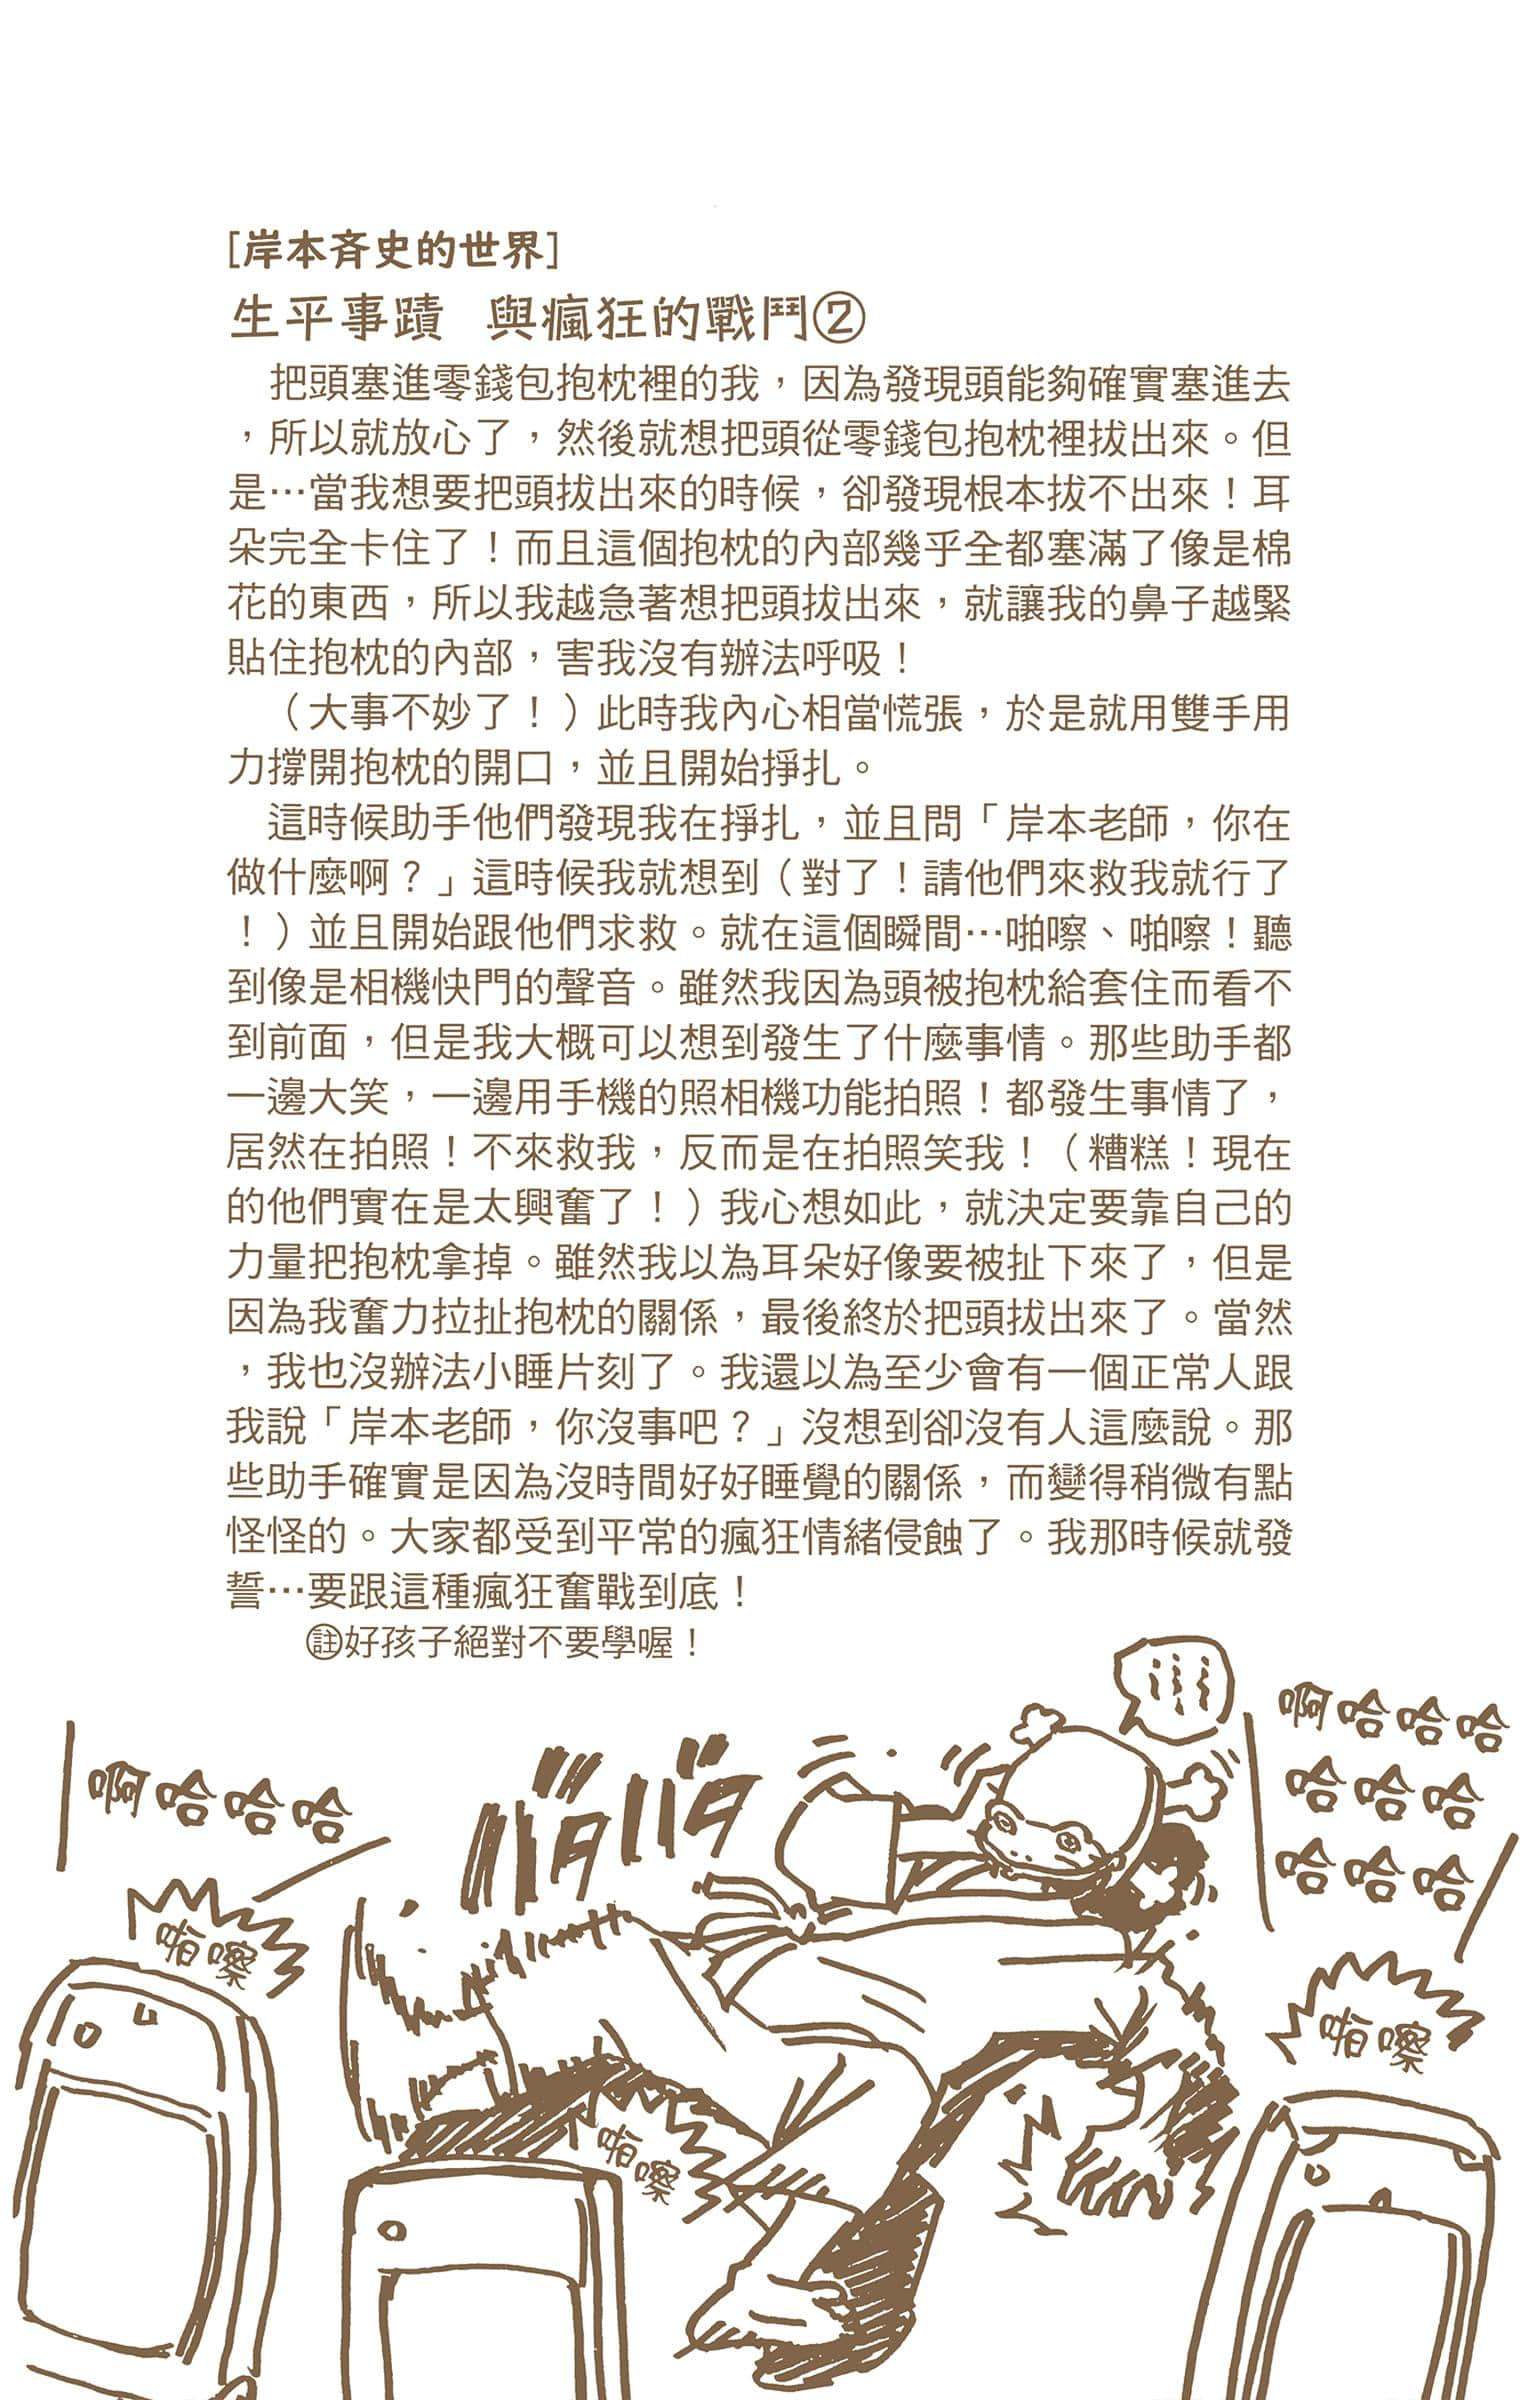 [岸本斉史的世界]
生平事蹟 與瘋狂的戰鬥②
把頭塞進零錢包抱枕裡的我，因為發現頭能夠確實塞進去
，所以就放心了，然後就想把頭從零錢包抱枕裡拔出來。但
是…當我想要把頭拔出來的時候，卻發現根本拔不出來！耳
朵完全卡住了！而且這個抱枕的內部幾乎全都塞滿了像是棉
花的東西，所以我越急著想把頭拔出來，就讓我的鼻子越緊
貼住抱枕的內部，害我沒有辦法呼吸！
（大事不妙了！）此時我內心相當慌張，於是就用雙手用
力撐開抱枕的開口，並且開始掙扎。
這時候助手他們發現我在掙扎，並且問「岸本老師，你在
做什麼啊？」這時候我就想到（對了！請他們來救我就行了
！）並且開始跟他們求救。就在這個瞬間…啪嚓、啪嚓！聽
到像是相機快門的聲音。雖然我因為頭被抱枕給套住而看不
到前面，但是我大概可以想到發生了什麼事情。那些助手都
一邊大笑，一邊用手機的照相機功能拍照！都發生事情了，
居然在拍照！不來救我，反而是在拍照笑我！（糟糕！現在
的他們實在是太興奮了！）我心想如此，就決定要靠自己的
力量把抱枕拿掉。雖然我以為耳朵好像要被扯下來了，但是
因為我奮力拉扯抱枕的關係，最後終於把頭拔出來了。當然
，我也沒辦法小睡片刻了。我還以為至少會有一個正常人跟
我說「岸本老師，你沒事吧？」沒想到卻沒有人這麼說。那
些助手確實是因為沒時間好好睡覺的關係，而變得稍微有點
怪怪的。大家都受到平常的瘋狂情緒侵蝕了。我那時候就發
誓…要跟這種瘋狂奮戰到底！
㊟好孩子絕對不要學喔！
啊哈哈哈
哈哈哈
哈哈哈
啊哈哈哈
バタバタ
啪嚓
啪嚓
啪嚓